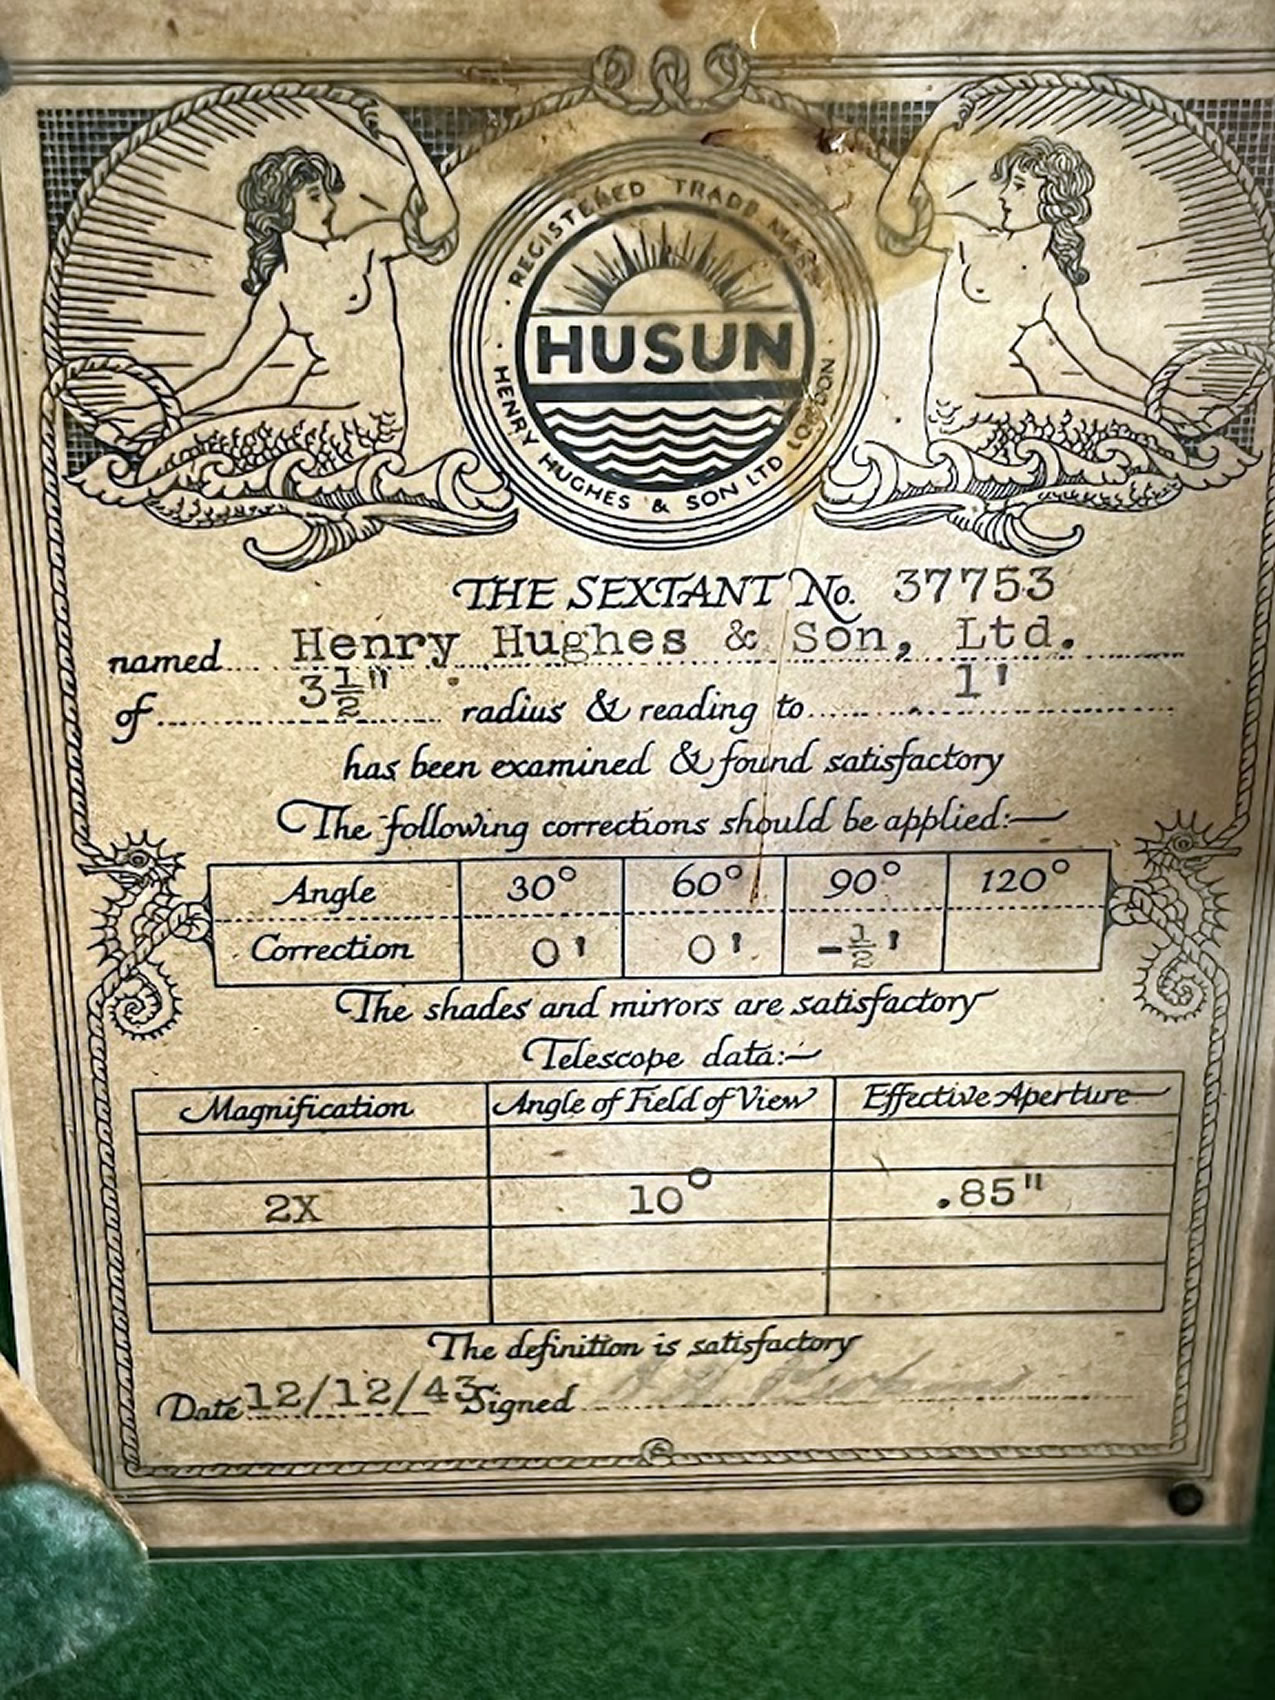 REGISTERED TRADE MARK
HUSUN
HENRY HUGHES & SON LTD LONDON
THE SEXTANT No. 37753
named Henry Hughes & Son, Ltd.
of 3½" radius & reading to 1'
has been examined & found satisfactory
The following corrections should be applied:—
Angle 30° 60° 90° 120°
Correction 0' 0' -½'
The shades and mirrors are satisfactory
Telescope data:—
Magnification Angle of Field of View Effective Aperture
2X 10° .85"
The definition is satisfactory
Date 12/12/43 Signed